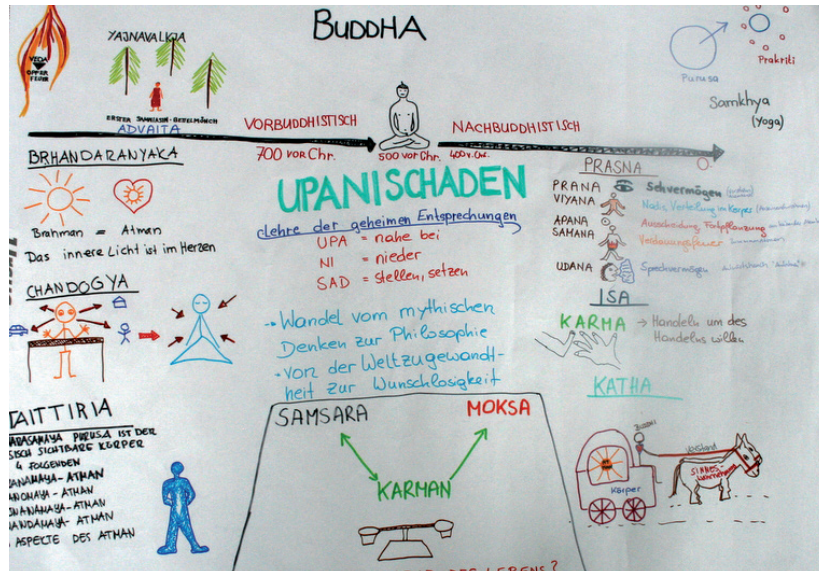 BUDDHA
YAJNAVALKJA
VEDA
OPFER
FEUER
ADVAITA
VORBUDDHISTISCH
700 VOR Chr.
500 vor Chr.
NACHBUDDHISTISCH
400 v. Chr.
0.
Purusa
Prakriti
Samkhya
(Yoga)
BRHANDARANYAKA
Brahman = Atman
Das innere Licht ist im Herzen
CHANDOGYA
TAITTIRIA
PURUSA IST DER
SICHTBARE KÖRPER
4 FOLGENDEN
ATMAN
ATMAN
ATMAN
ATMAN
ASPEKTE DES ATMAN
UPANISCHADEN
Lehre der geheimen Entsprechungen
UPA = nahe bei
NI = nieder
SAD = stellen, setzen
→ Wandel vom mythischen
Denken zur Philosophie
→ Von der Weltzugewandt-
heit zur Wunschlosigkeit
SAMSARA
MOKSA
KARMAN
PRASNA
PRANA Sehvermögen
VIYANA Nadis, Verteilung im Körper
APANA Ausscheidung, Fortpflanzung
SAMANA Verdauungsfeuer
UDANA Sprechvermögen
ISA
KARMA → Handeln um des
Handelns willen
KATHA
BUDDHI
Verstand
SINNES-
Körper